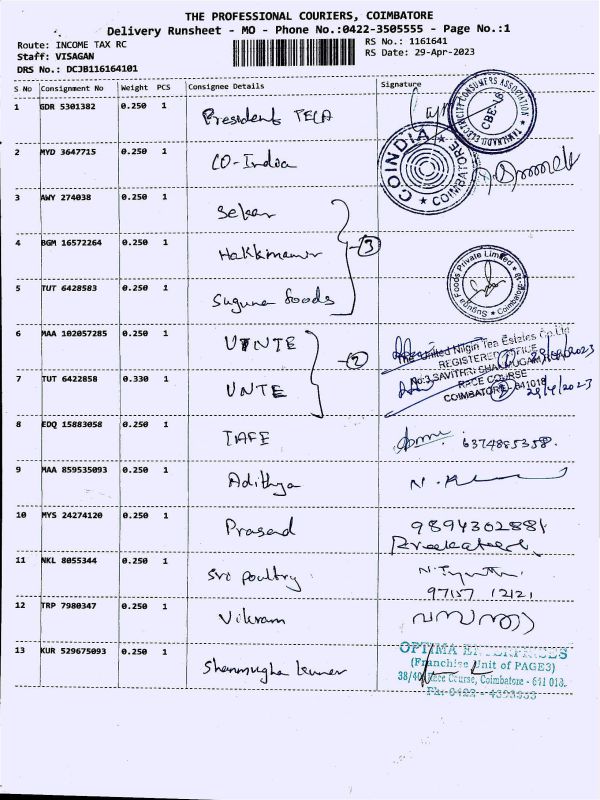 THE PROFESSIONAL COURIERS, COIMBATORE
Delivery Runsheet - MO - Phone No.:0422-3505555 - Page No.:1
Route: INCOME TAX RC
RS No.: 1161641
Staff: VISAGAN
RS Date: 29-Apr-2023
DRS No.: DCJB116164101
S No Consignment No Weight PCS Consignee Details Signature
1 GDR 5301382 0.250 1 President TECA
TAMILNADU ELECTRICITY CONSUMERS ASSOCIATION
CBE-18
2 MYD 3647715 0.250 1 CO-India
COINDIA COIMBATORE
3 AWY 274038 0.250 1 Sekar
4 BGM 16572264 0.250 1 Hakkimanvr
3
5 TUT 6428583 0.250 1 Suguna foods
Suguna Foods Private Limited Coimbatore-18
6 MAA 102057285 0.250 1 UNTE
2
The United Nilgiri Tea Estates Co.Ltd
REGISTERED OFFICE
No:3,SAVITHRI SHANMUGAM ROAD
RACE COURSE
COIMBATORE - 641018
7 TUT 6422858 0.330 1 UNTE
29/4/2023
8 EDQ 15883058 0.250 1 TAFE
6374885358.
9 MAA 859535093 0.250 1 Adithya
10 MYS 24274120 0.250 1 Prasad
9894302881
11 NKL 8055344 0.250 1 Sri poultry
97157 12121
12 TRP 7980347 0.250 1 Vikram
13 KUR 529675093 0.250 1 Shanmugha kumar
OPTIMA ENTERPRISES
(Franchise Unit of PAGE3)
38/40, Race Course, Coimbatore - 641 018.